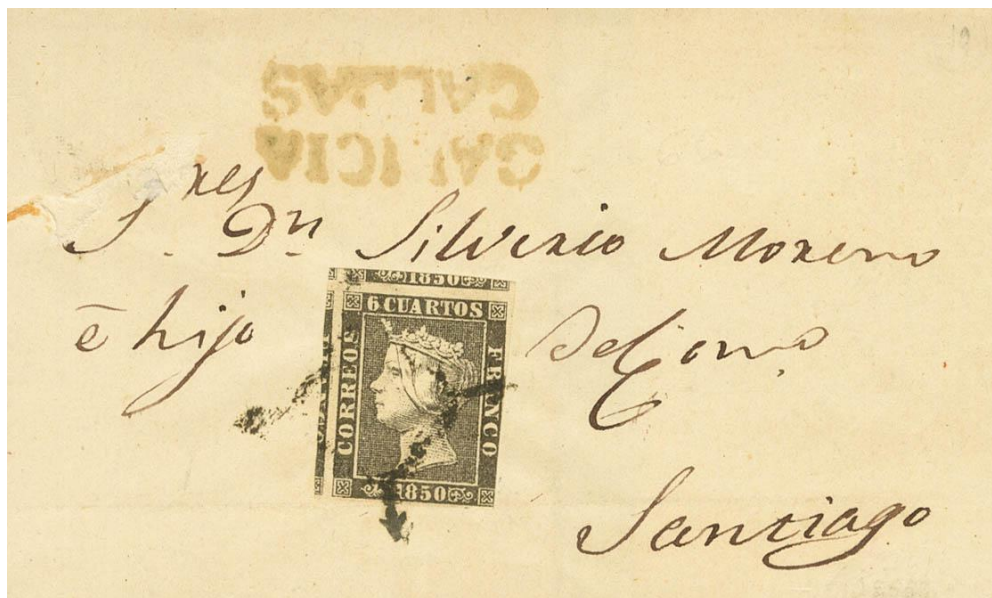 GALICIA
CALDAS
S.res Dn Silverio Moreno
é hijo del Como
Santiago
1850
6 CUARTOS
CORREOS
FRANCO
1850